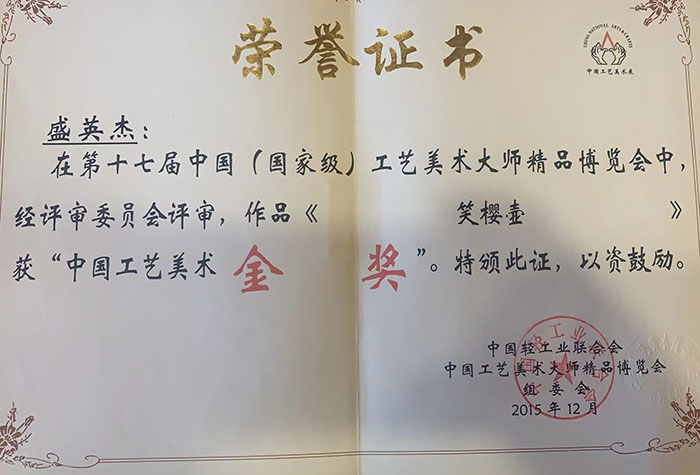 荣誉证书
CHINA NATIONAL ARTS&CRAFTS
中国工艺美术展
盛英杰：
在第十七届中国（国家级）工艺美术大师精品博览会中，
经评审委员会评审，作品《 笑樱壶 》
获“中国工艺美术 金 奖”。特颁此证，以资鼓励。
中国轻工业联合会
中国工艺美术大师精品博览会
组委会
2015年12月